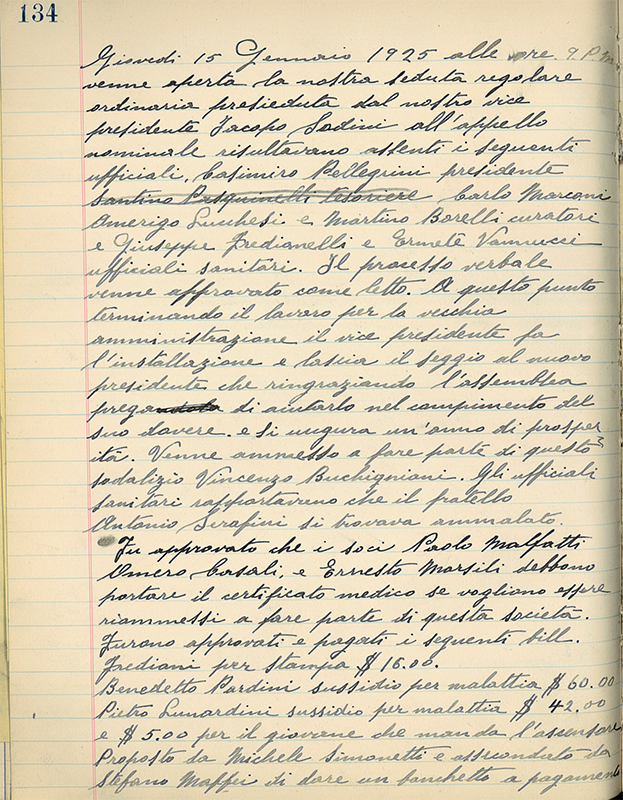 134
Giovedi 15 Gennaio 1925 alle ore 9 P.M
venne aperta la nostra seduta regolare
ordinaria presieduta dal nostro vice
presidente Jacopo Sodini all'appello
nominale risultavano assenti i seguenti
ufficiali, Casimiro Pellegrini presidente
Santino Pasquinelli tesoriere Carlo Marconi
Amerigo Lucchesi e Martino Borelli curatori
e Giuseppe Fredianelli e Ermete Vannucci
ufficiali sanitari. Il processo verbale
venne approvato come letto. A questo punto
terminando il lavoro per la vecchia
amministrazione il vice presidente fa
l'installazione e lascia il seggio al nuovo
presidente che ringraziando l'assemblea
prega di aiutarlo nel compimento del
suo dovere. e si augura un'anno di prosper
ità. Venne ammesso a fare parte di questo
sodalizio Vincenzo Buchigniani. Gli ufficiali
sanitari rapportavano che il fratello
Antonio Serafini si trovava ammalato.
Fu approvato che i soci Paolo Malfatti
Omero Casali, e Ernesto Marsili debbono
portare il certificato medico se vogliono essere
riammessi a fare parte di questa società.
Furono approvati e pagati i seguenti bill.
Frediani per stampa $ 16.00.
Benedetto Pardini sussidio per malattia $ 60.00
Pietro Lunardini sussidio per malattia $ 42.00
e $ 5.00 per il giovane che manda l'ascensore
Proposto da Michele Simonetti e assecondato da
Stefano Maffei di dare un banchetto a pagamento